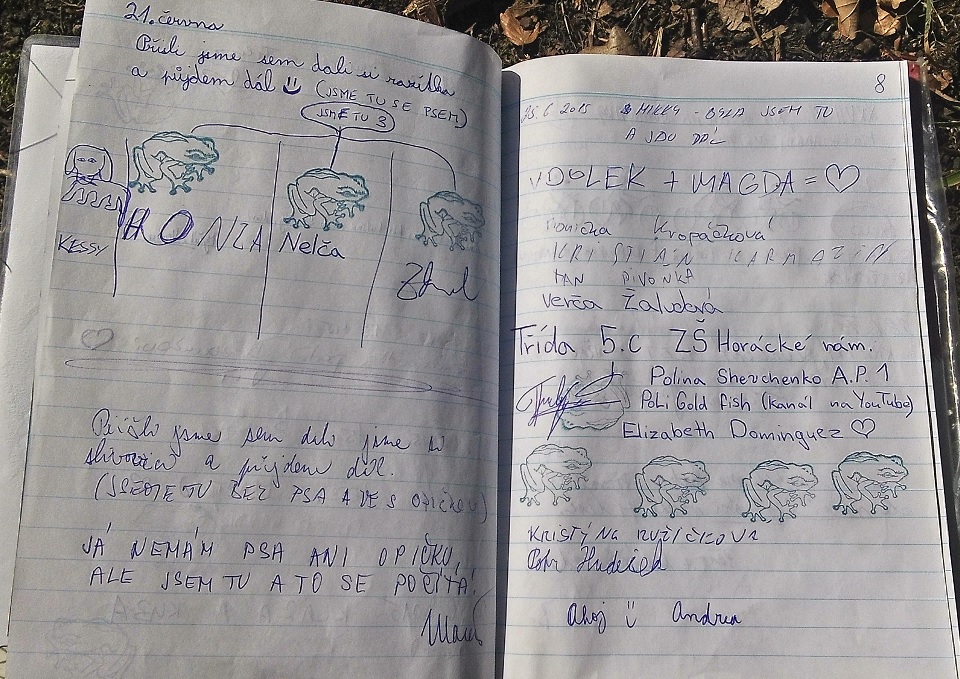 21. června
Přišli jsme sem dali si razítka
a půjdem dál (JSME TU SE PSEM)
JSME TU 3
KESSY
HONZA
Nelča
Přišli jsme sem dali jsme si
slivovici a půjdem dál.
(JSEME TU BEZ PSA A
JÁ NEMÁM PSA ANI OPIČKU,
ALE JSEM TU A TO SE POČÍTÁ!
8
25. 6. 2015 MIKKY - BYLA JSEM TU
A JDU DÁL
VDOLEK + MAGDA = ♡
Monička Kropáčková
KRISTIÁN KARMAZÍN
JAN PIVOŇKA
Verča Žaludová
Třída 5.C ZŠ Horácké nám.
Polina Shevchenko A.P. 1
PoLi Gold fish (kanál na YouTube)
Elizabeth Dominguez ♡
KRISTÝNA RŮŽIČKOVÁ
Petr Hudeček
Ahoj Andrea